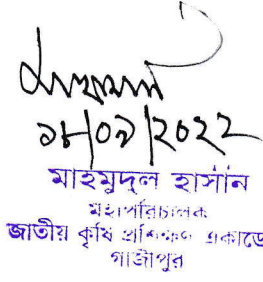 ১৮/০৯/২০২২
মাহমুদুল হাসান
মহাপরিচালক
জাতীয় কৃষি প্রশিক্ষণ একাডে
গাজীপুর